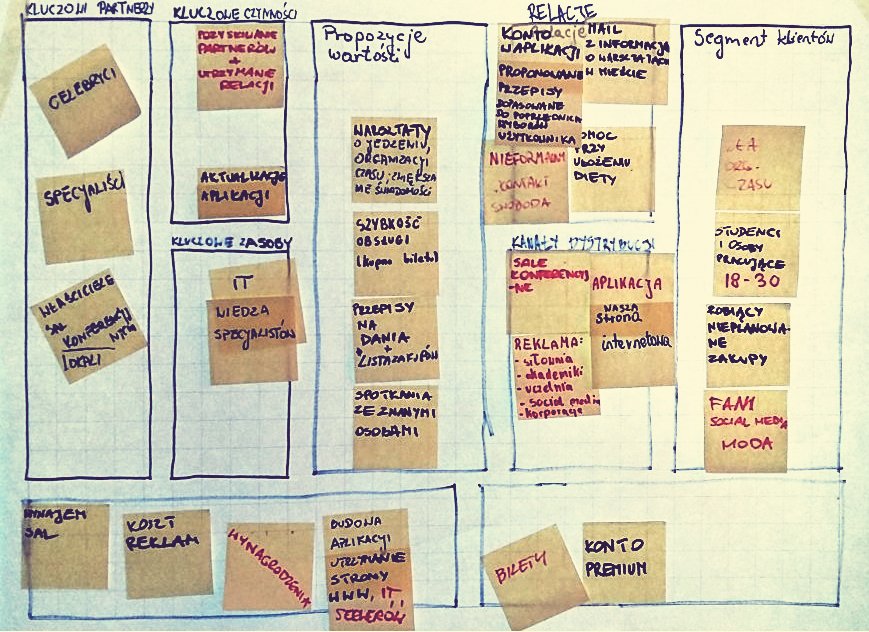 KLUCZOWI PARTNERZY
CELEBRYCI
SPECJALIŚCI
WŁAŚCICIELE
SAL
KONFERENCYJ
NYCH
LOKALI
KLUCZOWE CZYNNOŚCI
POZYSKIWANIE
PARTNERÓW
+
UTRZYMANIE
RELACJI
AKTUALIZACJE
APLIKACJI
KLUCZOWE ZASOBY
IT
WIEDZA
SPECJALISTÓW
Propozycje
wartości
WARSZTATY
O JEDZENIU,
ORGANIZACJI
CZASU,
ŚWIADOMOŚCI
SZYBKOŚĆ
OBSŁUGI
(kupno biletu)
PRZEPISY
NA
DANIA
+
LISTA ZAKUPÓW
SPOTKANIA
ZE ZNANYMI
OSOBAMI
RELACJE
KONTO
W APLIKACJI
PROPONOWANE
PRZEPISY
DOPASOWANE
DO POPRZEDNICH
WYBORÓW
UŻYTKOWNIKA
MAIL
Z INFORMACJĄ
O WARSZTATACH
W MIEŚCIE
NIEFORMALNY
KONTAKT
SWOBODA
POMOC
PRZY
UŁOŻENIU
DIETY
KANAŁY DYSTRYBUCJI
SALE
KONFERENCYJ
-NE
APLIKACJA
NASZA
strona
internetowa
REKLAMA:
- siłownia
- akademiki
- uczelnia
- social media
- korporacje
Segment klientów
ORG.
CZASU
STUDENCI
I OSOBY
PRACUJĄCE
18-30
ROBIĄCY
NIEPLANOWA-
NE
ZAKUPY
FANI
SOCIAL MEDIA
MODA
WYNAJEM
SAL
KOSZT
REKLAM
WYNAGRODZENIA
BUDOWA
APLIKACJI
UTRZYMANIE
STRONY
WWW, IT,
SERWERÓW
BILETY
KONTO
PREMIUM